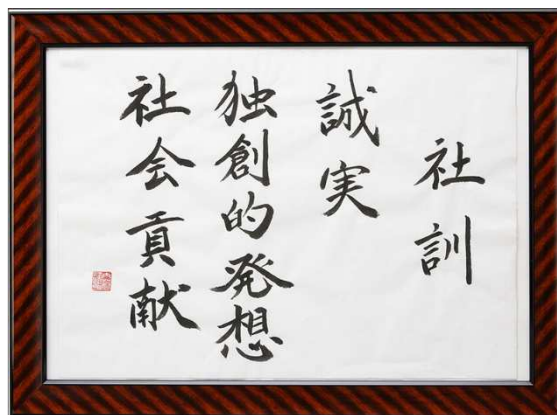 社訓
誠実
独創的発想
社会貢献